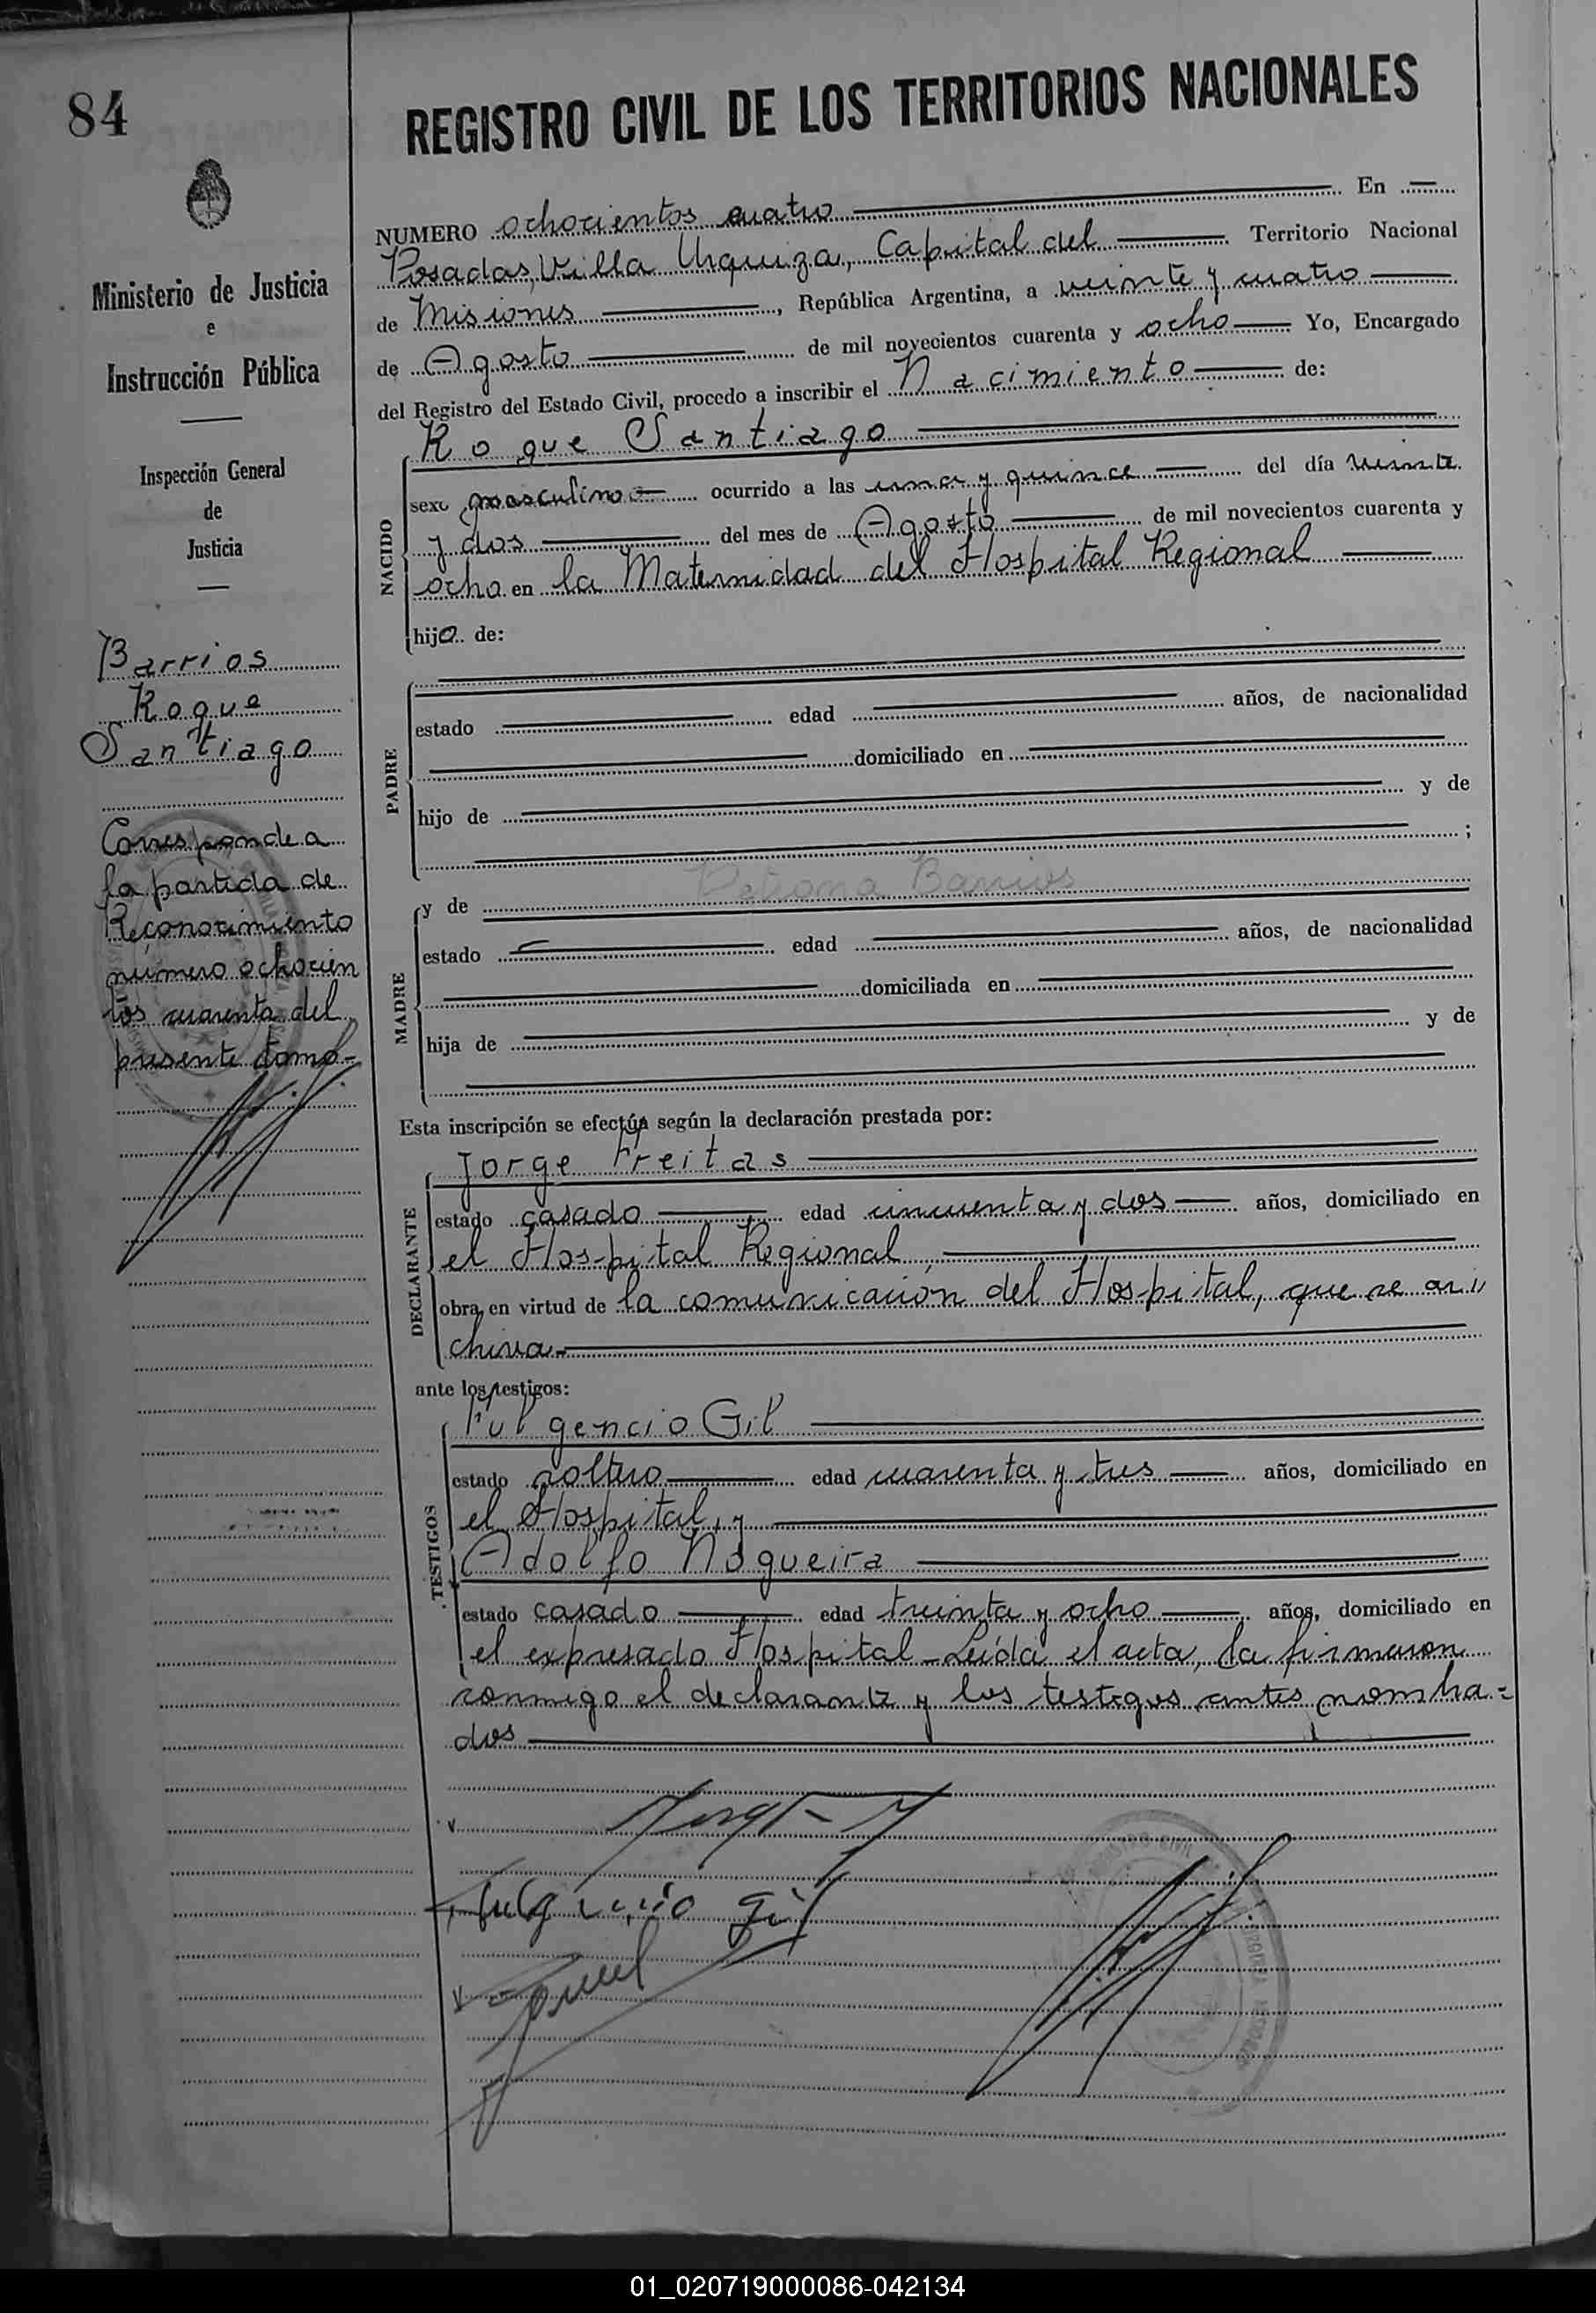 84
REGISTRO CIVIL DE LOS TERRITORIOS NACIONALES
Ministerio de Justicia
e
Instrucción Pública
Inspección General
de
Justicia
Barrios
Roque
Santiago
Corresponde a
la partida de
Reconocimiento
número ochocien
tos cuarenta del
presente tomo-
NUMERO ochocientos cuatro En
Posadas, Villa Urquiza, Capital del Territorio Nacional
de Misiones, República Argentina, a veinte y cuatro
de Agosto de mil novecientos cuarenta y ocho Yo, Encargado
del Registro del Estado Civil, procedo a inscribir el Nacimiento de:
NACIDO
Roque Santiago
sexo masculino ocurrido a las una y quince del día veinte
y dos del mes de Agosto de mil novecientos cuarenta y
ocho en la Maternidad del Hospital Regional
hijo de:
PADRE
estado edad años, de nacionalidad
domiciliado en
hijo de y de
;
MADRE
y de Petrona Barrios
estado edad años, de nacionalidad
domiciliada en
hija de y de
Esta inscripción se efectúa según la declaración prestada por:
DECLARANTE
Jorge Freitas
estado casado edad cincuenta y dos años, domiciliado en
el Hospital Regional
obra en virtud de la comunicación del Hospital, que se ar
chiva-
ante los testigos:
TESTIGOS
Fulgencio Gil
estado soltero edad cuarenta y tres años, domiciliado en
el Hospital, y
Adolfo Nogueira
estado casado edad treinta y ocho años, domiciliado en
el expresado Hospital - Leída el acta, la firmaron
conmigo el declarante y los testigos antes nombra=
dos
Fulgencio Gil
01_020719000086-042134